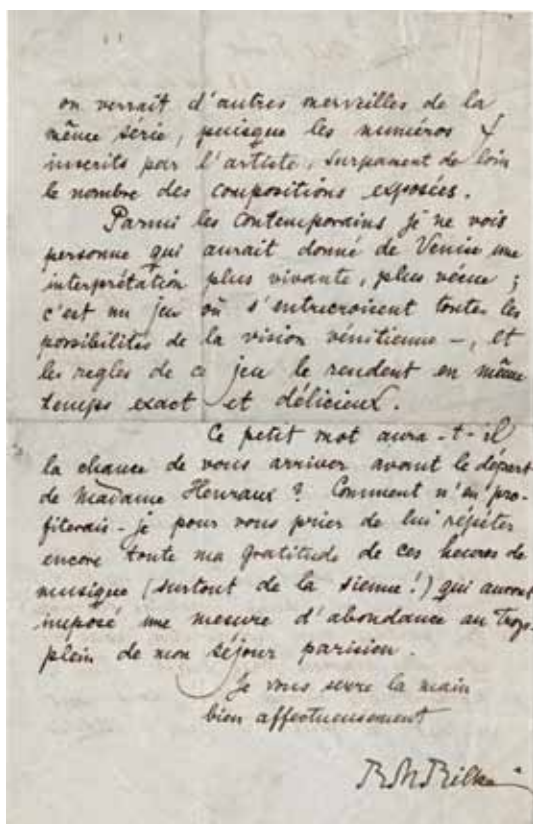 on verrait d'autres merveilles de la
même série, puisque les numéros
inscrits par l'artiste, surpassent de loin
le nombre des compositions exposées.
Parmi les contemporains je ne vois
personne qui aurait donné de Venise une
interprétation plus vivante, plus vécue ;
c'est un jeu où s'entrecroisent toutes les
possibilités de la vision vénitienne –, et
les regles de ce jeu le rendent en même
temps exact et délicieux.
Ce petit mot aura-t-il
la chance de vous arriver avant le départ
de Madame Henraux ? Comment n'en pro-
fiterais-je pour vous prier de lui répéter
encore toute ma gratitude de ces heures de
musique (surtout de la sienne !) qui auront
imposé une mesure d'abondance au trop-
plein de mon séjour parisien.
Je vous serre la main
bien affectueusement
RMRilke